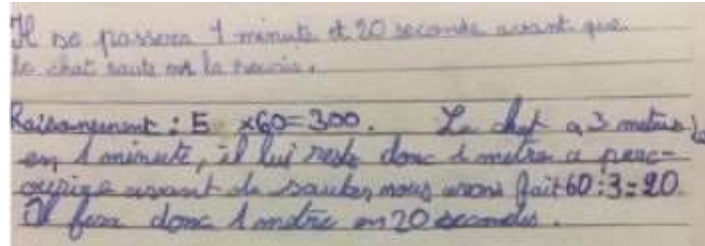 Il se passera 1 minute et 20 seconde avant que
le chat saute sur la souris.
Raisonnement : 5 x60=300. Le chat a 3 metres
en 1 minute, il lui reste donc 1 metre a parc-
avant de sauter, nous avons fait 60:3=20
Il fera donc 1 metre en 20 secondes.